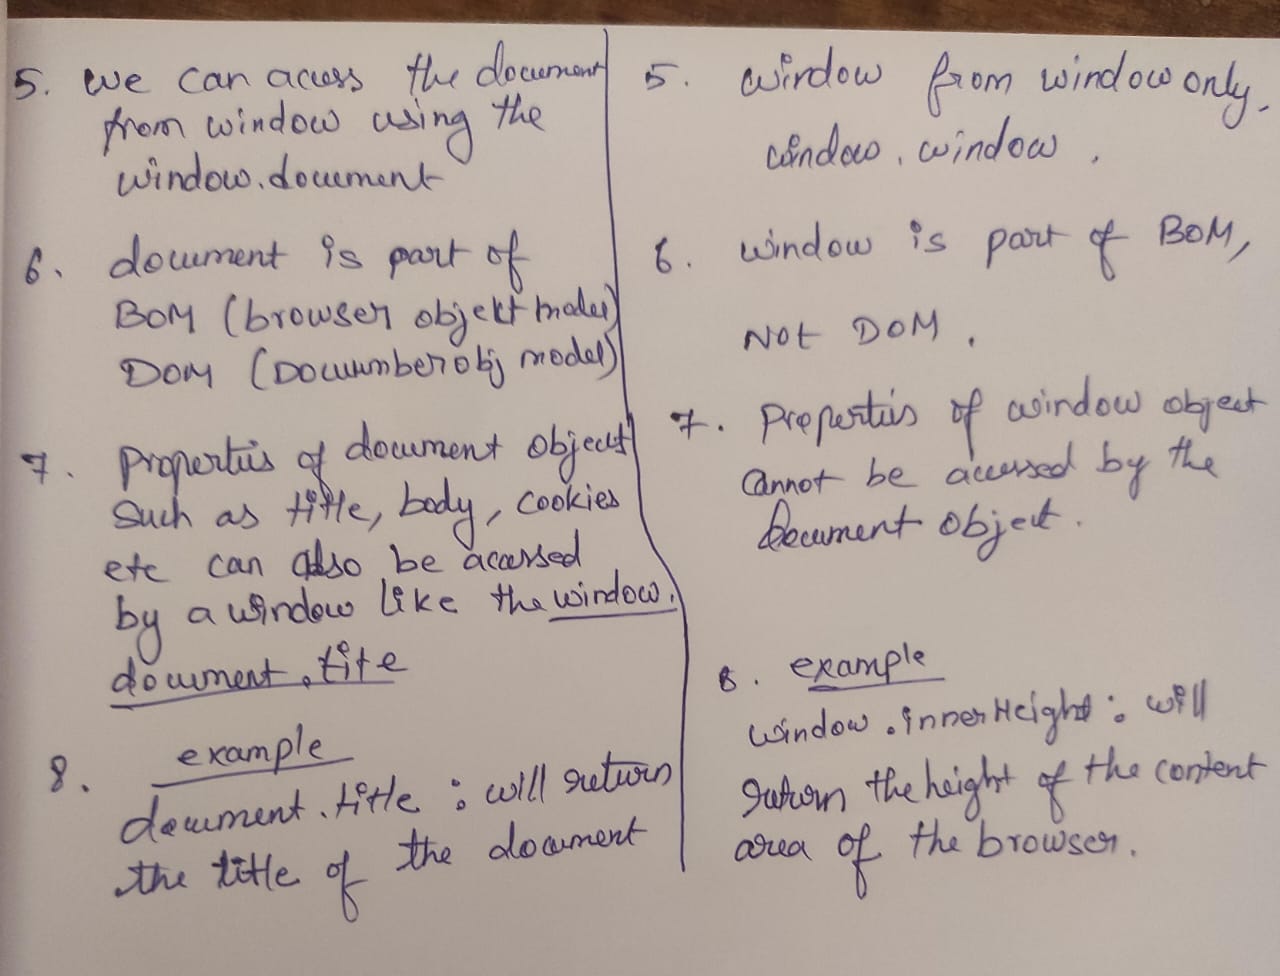 5. we can access the document
from window using the
window.document
6. document is part of
BOM (browser objekt model)
DOM (Documber obj model)
7. Properties of document object
such as title, body, cookies
etc can also be accessed
by a window like the window.
document.tite
8. example
document.title : will return
the title of the document
5. window from window only.
window.window.
6. window is part of BOM,
Not DOM.
7. Properties of window object
cannot be accessed by the
Document object.
8. example
window.innerHeight : will
return the height of the content
area of the browser.